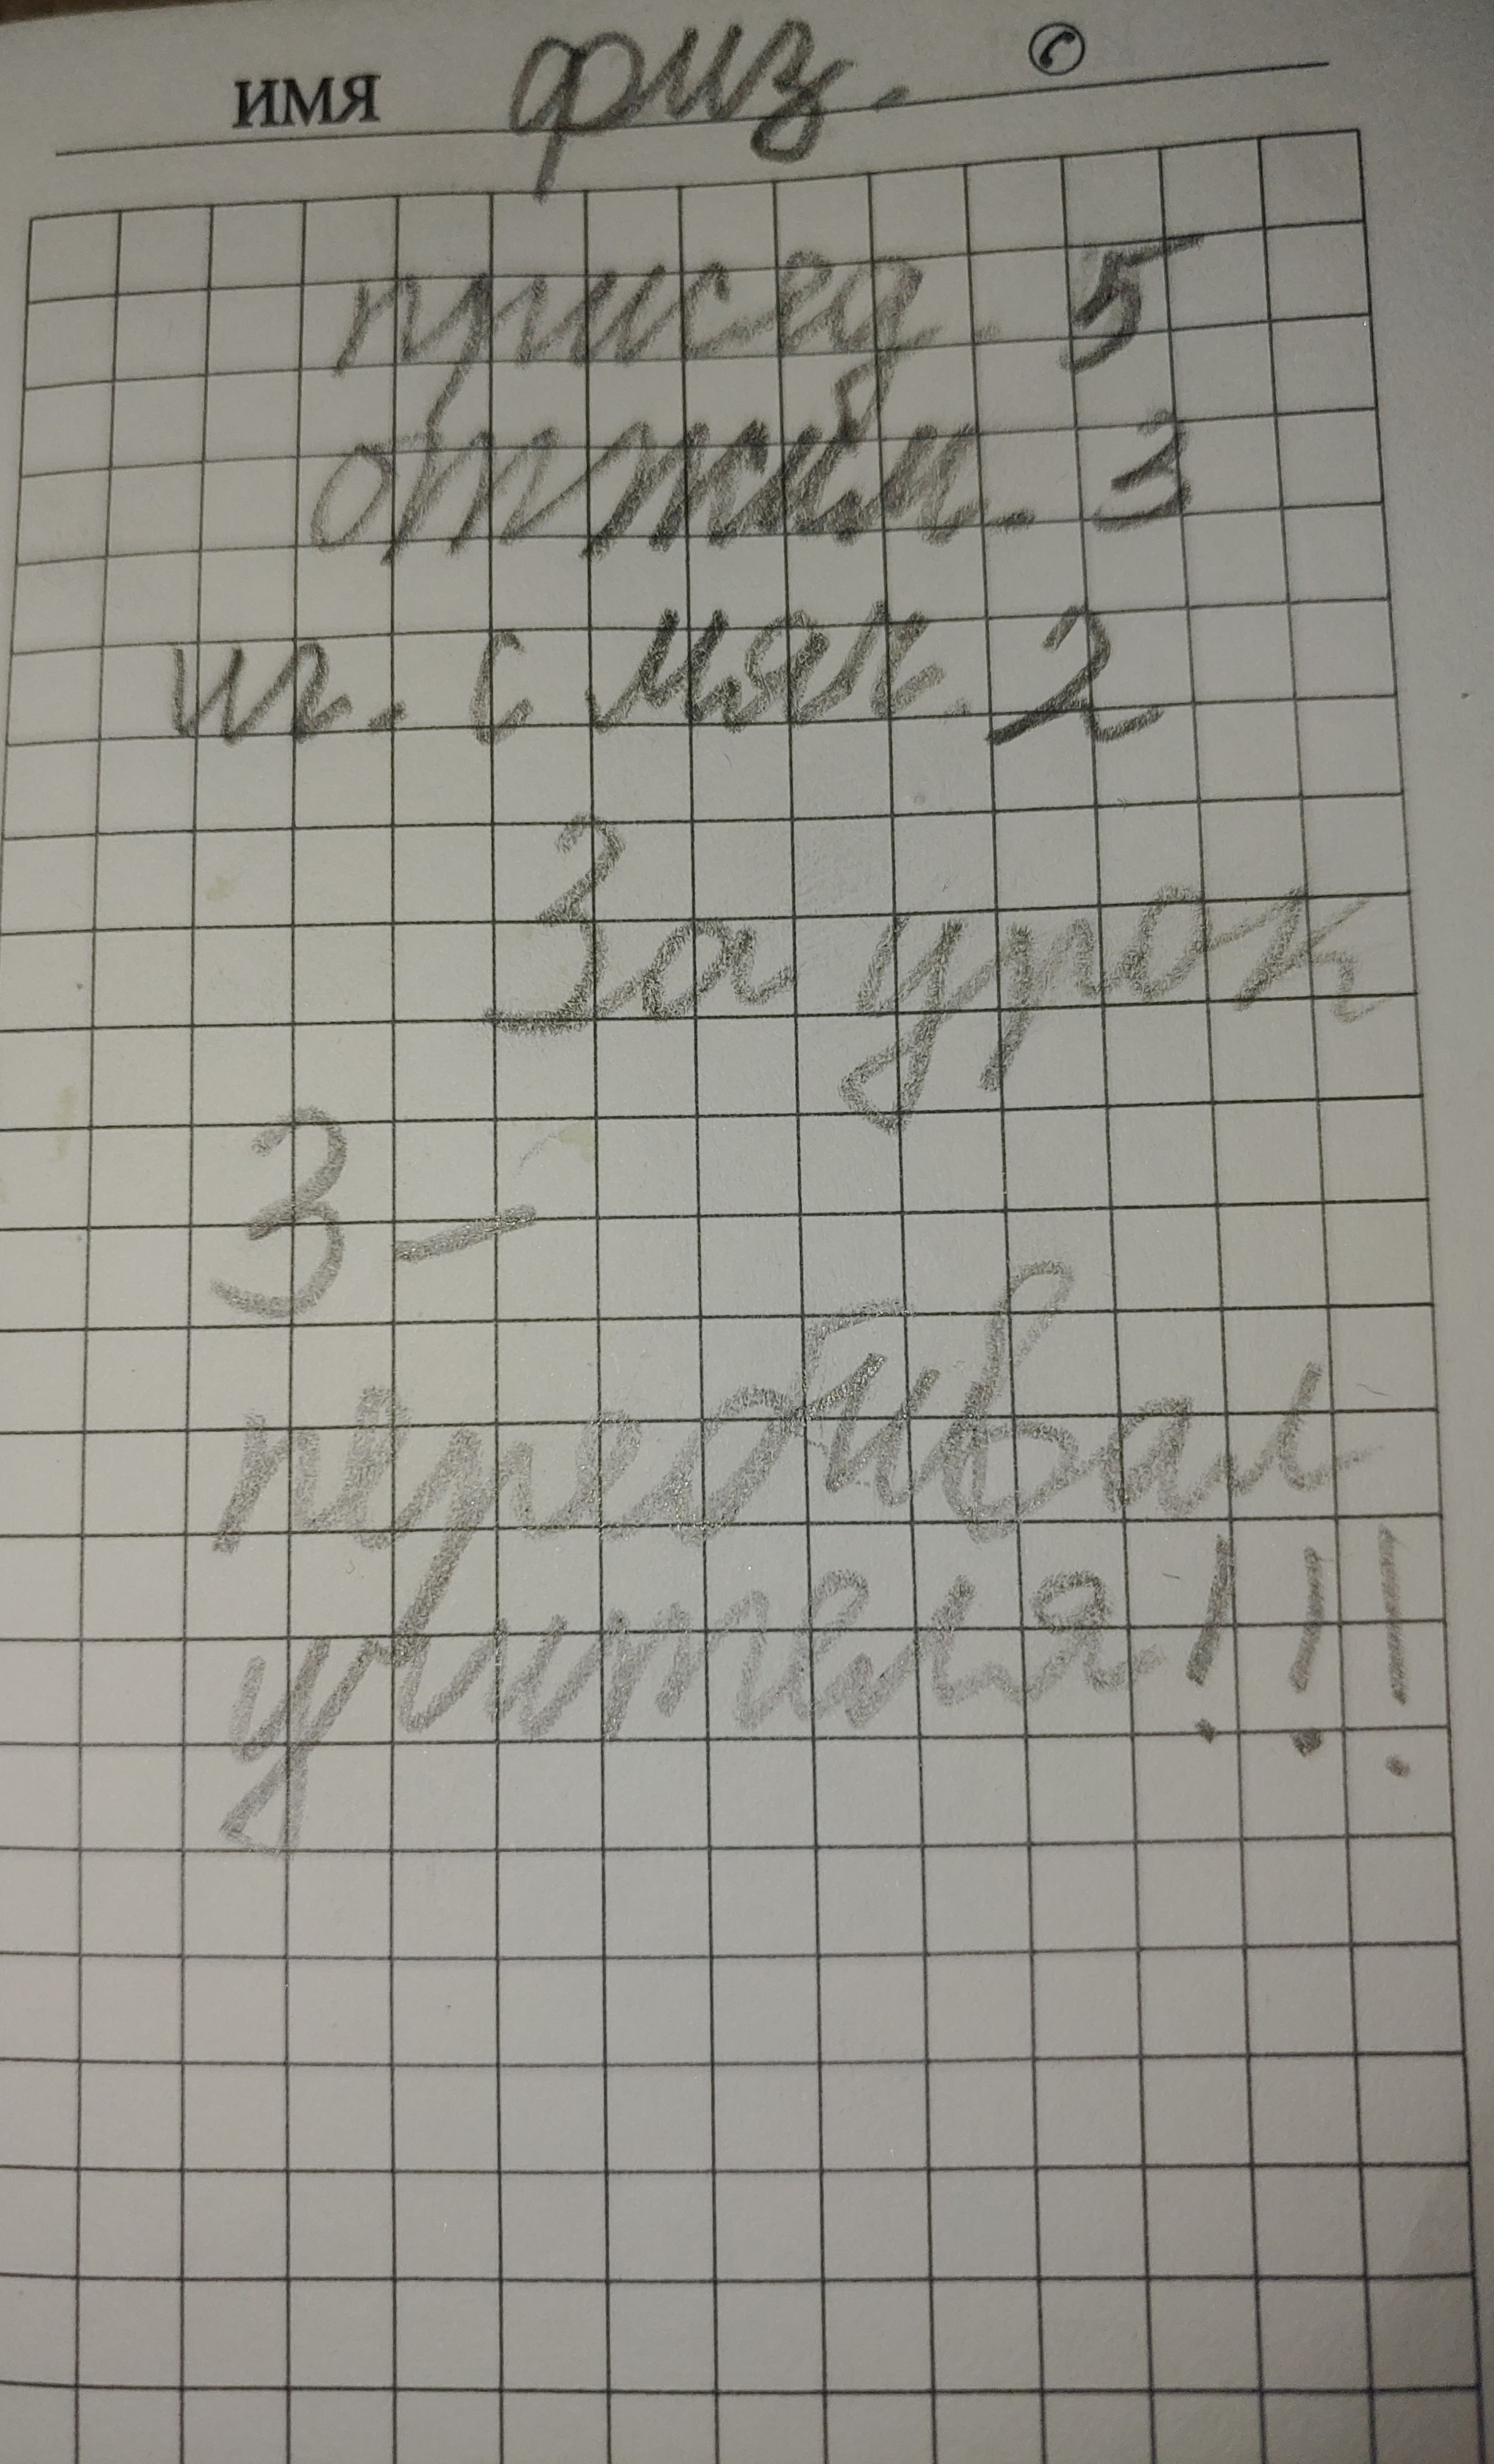 имя физ. ✆
присед. 5
отжим. 3
иг. с мяч. 2
За урок
3 –
перебивал
учителя!!!